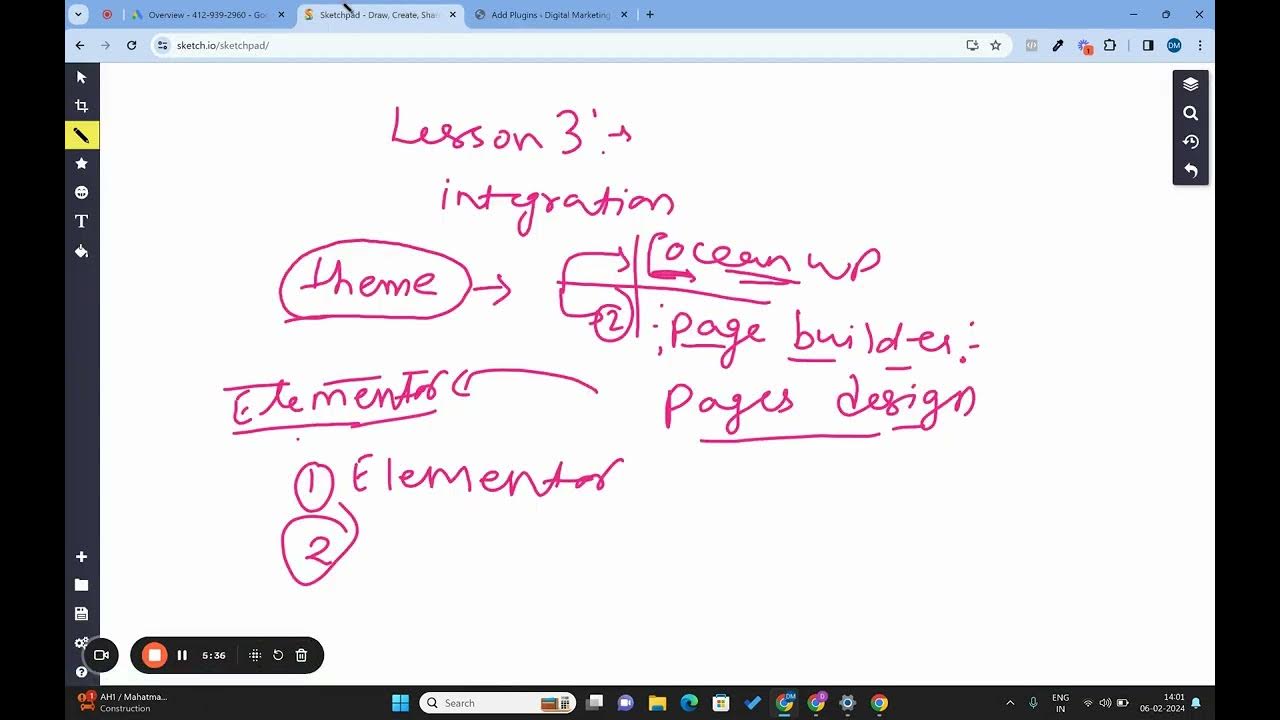 Overview - 412-939-2960 - Go
Sketchpad - Draw, Create, Shar
Add Plugins ‹ Digital Marketing
sketch.io/sketchpad/
DM
1
T
Lesson 3 :→
integration
theme → ocean wp
2 page builder :-
Elementor pages design
1 Elementor
2
5:36
?
1
AH1 / Mahatma...
Construction
Search
DM
D
ENG
IN
14:01
06-02-2024